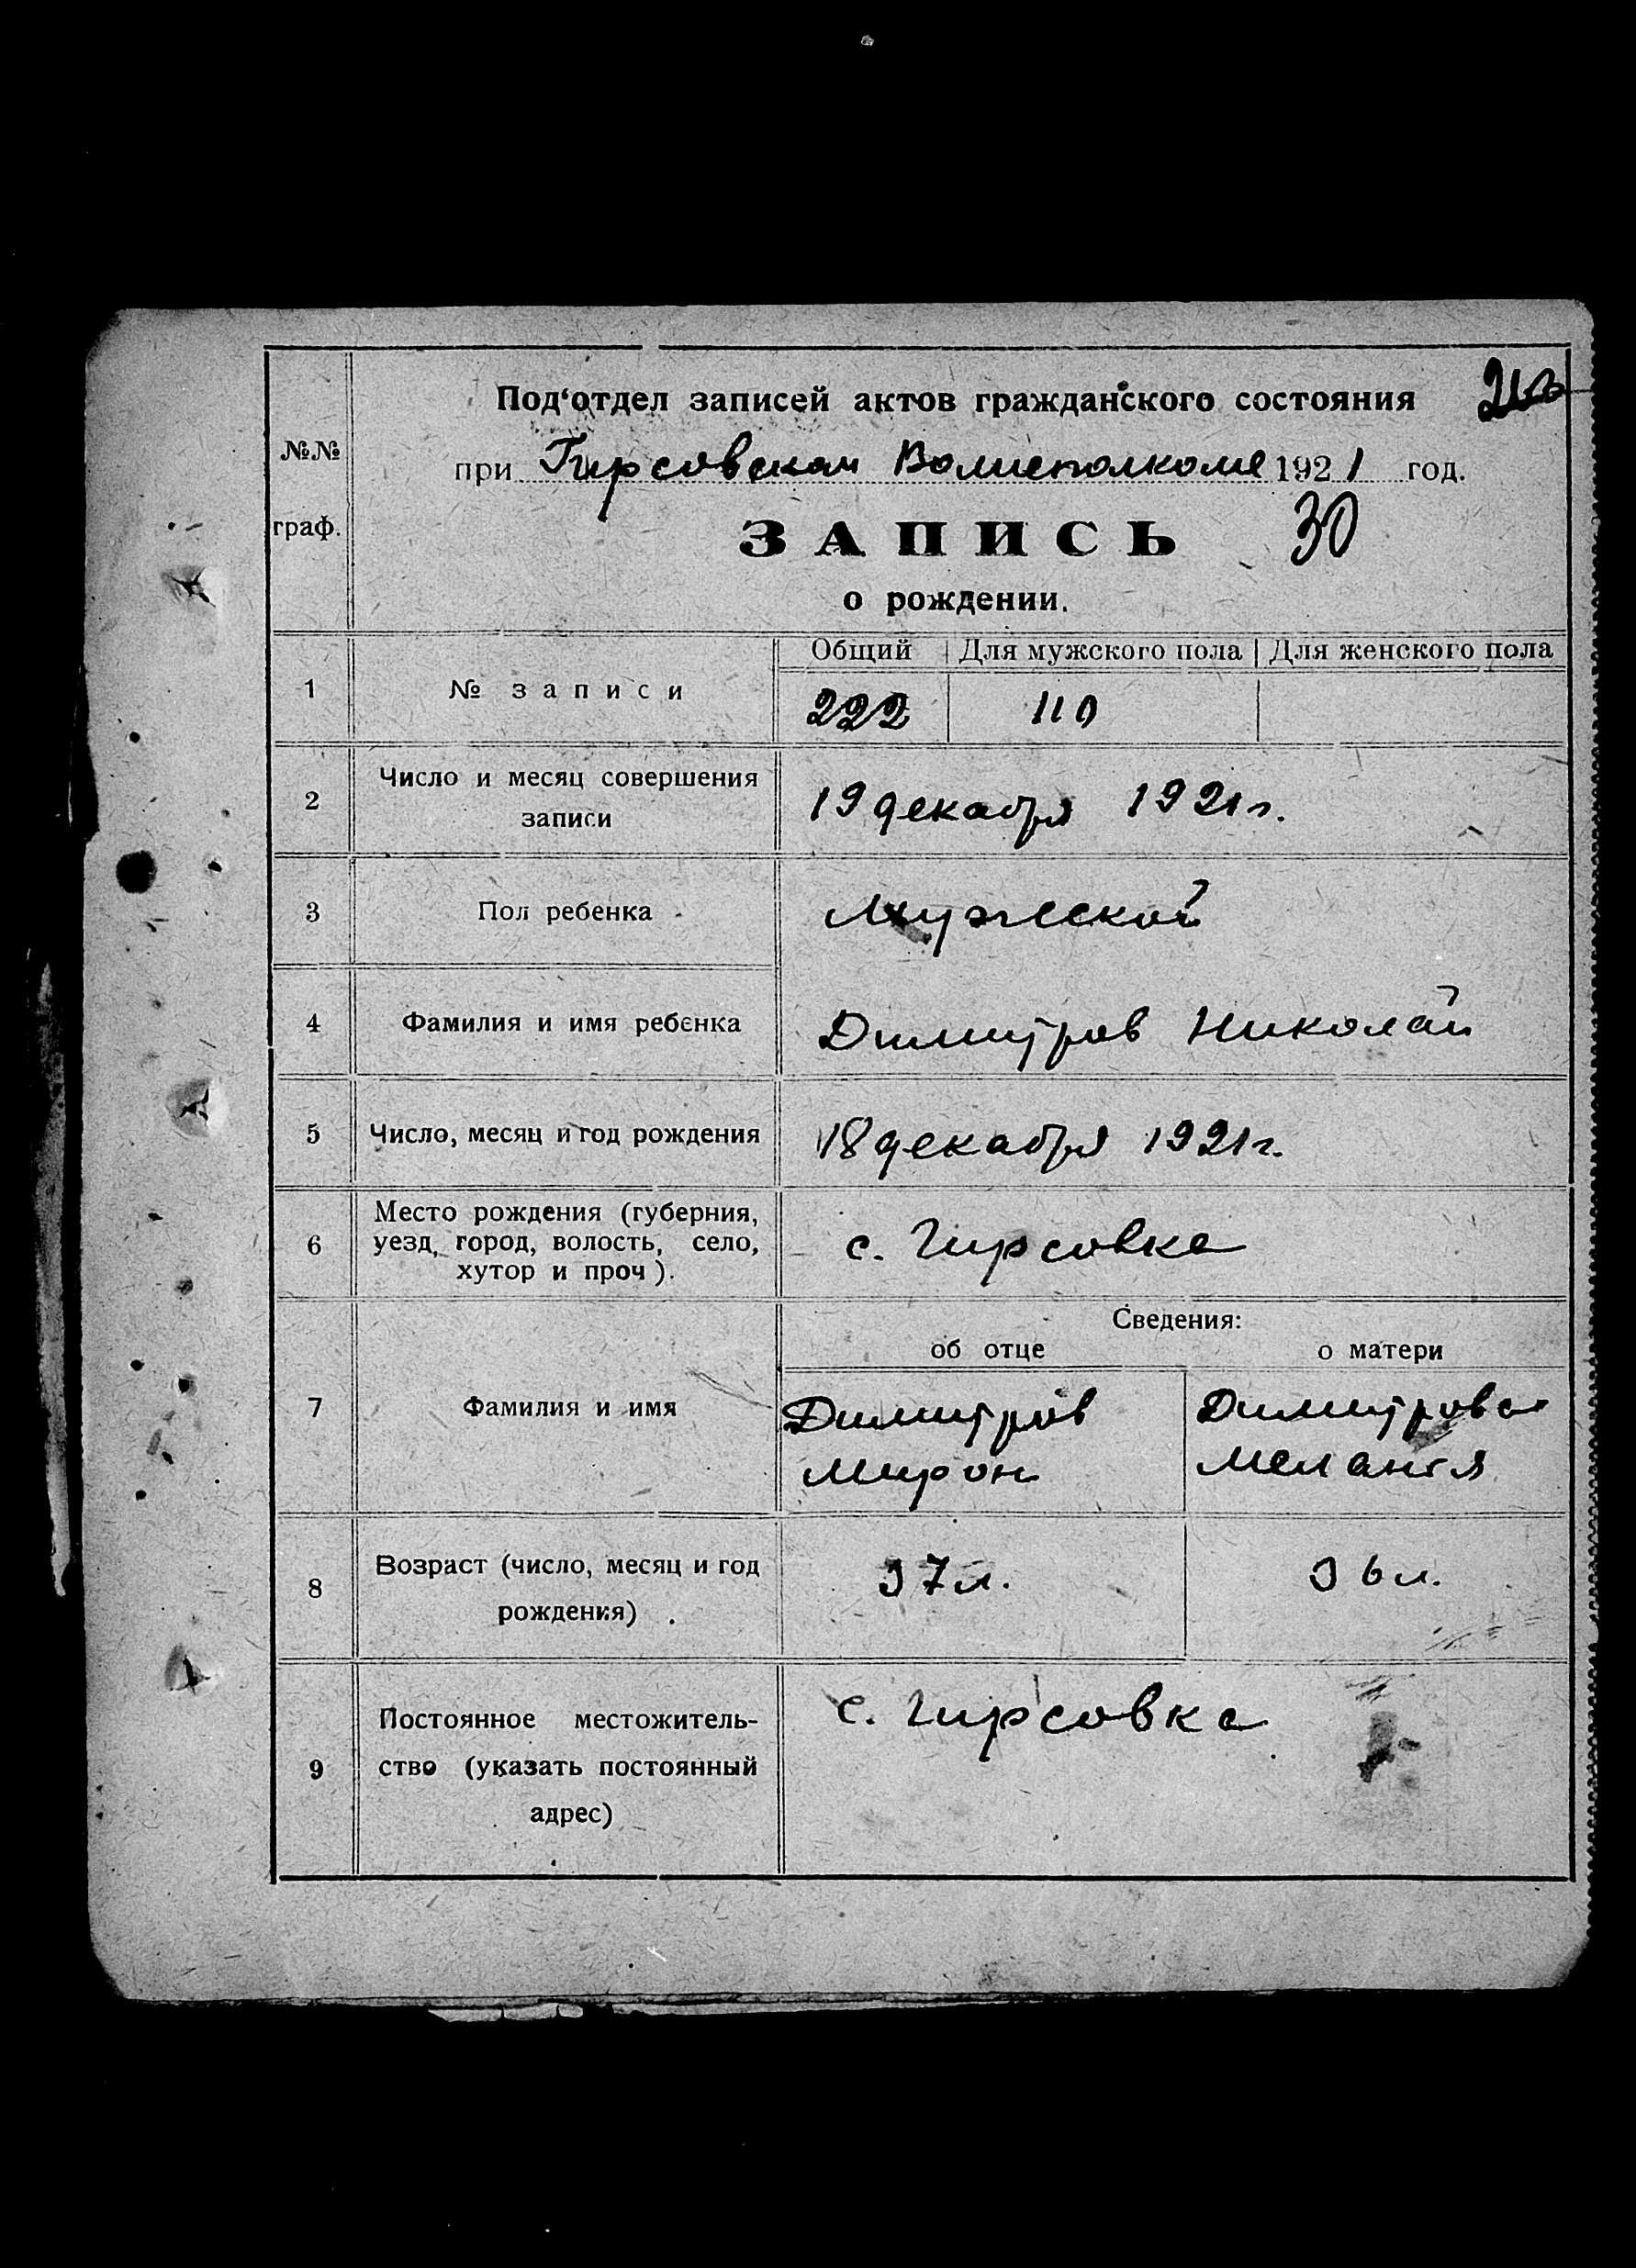 Под‘отдел записей актов гражданского состояния
№№
при Гирсовском Волисполкоме 1921 год.
граф.
ЗАПИСЬ 30
о рождении.
Общий Для мужского пола Для женского пола
1 № записи 222 110
2 Число и месяц совершения
записи
19 декабря 1921 г.
3 Пол ребенка Мужеской
4 Фамилия и имя ребенка Димитров Николай
5 Число, месяц и год рождения 18 декабря 1921 г.
Место рождения (губерния,
6 уезд, город, волость, село, с. Гирсовка
хутор и проч).
Сведения:
об отце о матери
7 Фамилия и имя Димитров Димитрова
Мирон Мелания
8 Возраст (число, месяц и год
рождения)
37 л. 36 л.
с. Гирсовка
Постоянное местожитель-
9 ство (указать постоянный
адрес)